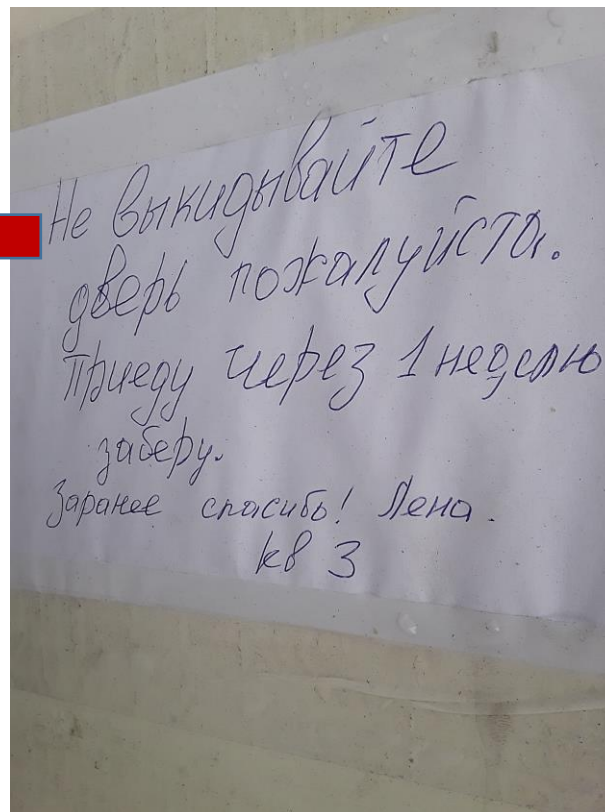 Не выкидывайте
дверь пожалуйста.
Приеду через 1 неделю
заберу.
Заранее спасибо! Лена.
кв 3